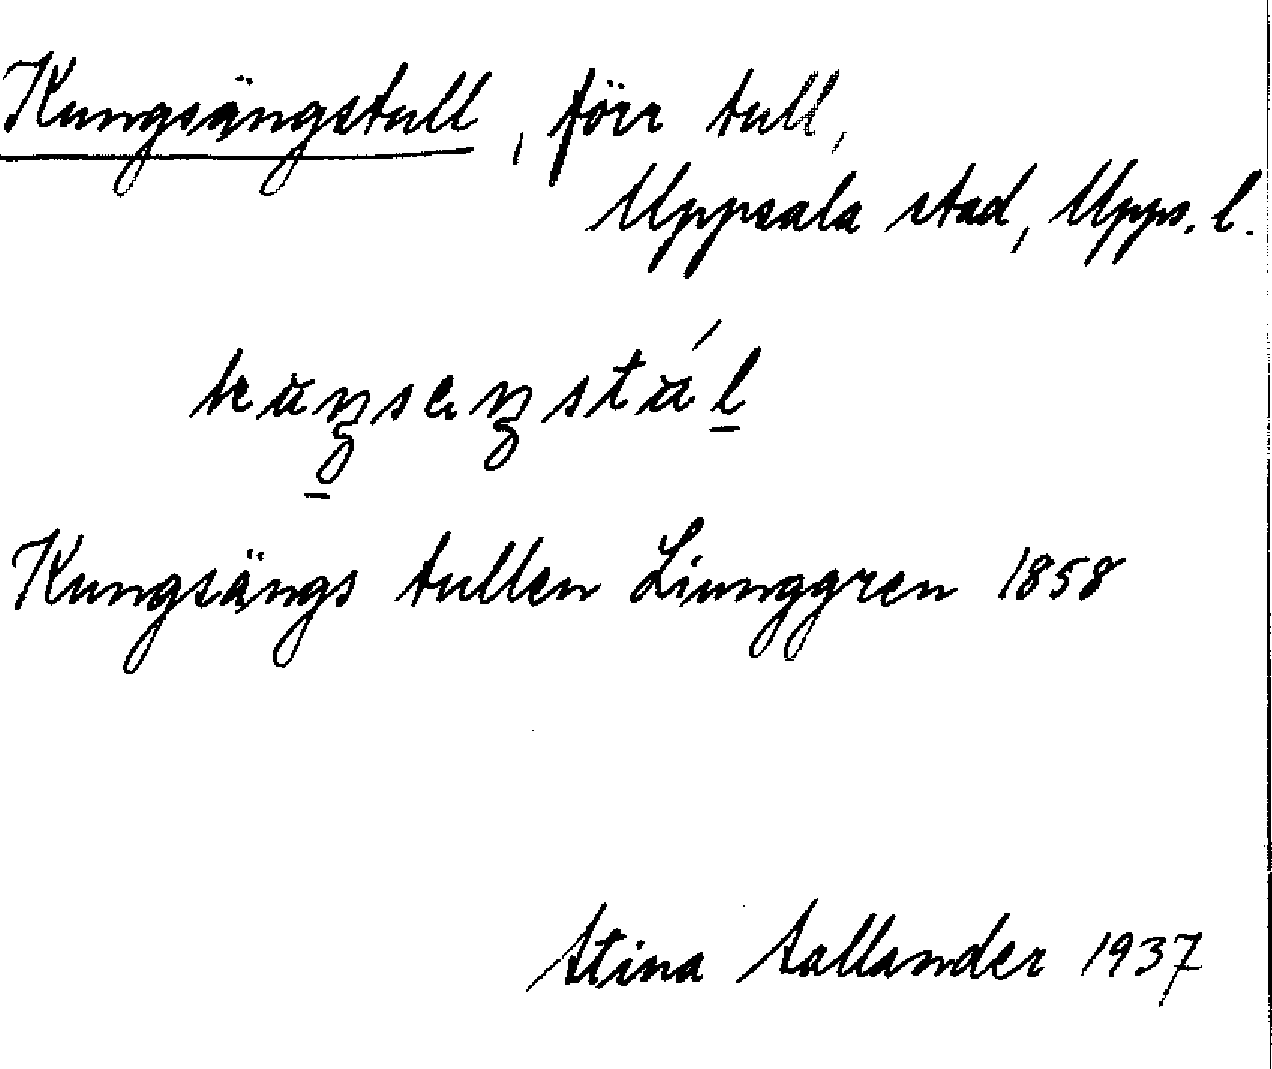 Kungsängstull, förr tull,
Uppsala stad, Upps. l.
kuŋsεŋstúl
Kungsängs tullen Liunggren 1858
Stina Sallander 1937